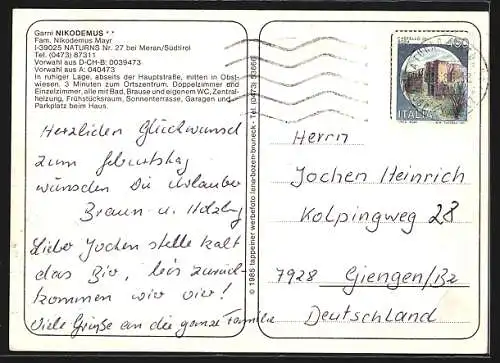 Garni NIKODEMUS **
Fam. Nikodemus Mayr
I-39025 NATURNS Nr. 27 bei Meran/Südtirol
Tel. (0473) 87311
Vorwahl aus D-CH-B: 0039473
Vorwahl aus A: 040473
In ruhiger Lage, abseits der Hauptstraße, mitten in Obst-
wiesen, 3 Minuten zum Ortszentrum. Doppelzimmer und
Einzelzimmer, alle mit Bad, Brause und eigenem WC, Zentral-
heizung, Frühstücksraum, Sonnenterrasse, Garagen und
Parkplatz beim Haus.
Herzlichen Glückwunsch
zum Geburtstag
wünschen Die Urlauber
Braun u. Holzbg
Lieber Jochen stelle kalt
das Bier, bis zurück-
kommen wir vier!
Viele Grüße an die ganze Familie
© 1985 tappeiner werbefoto lana-bozen-bruneck - Tel. (0473)
450
ITALIA
Herrn
Jochen Heinrich
Kolpingweg 28
7928 Giengen/Bz
Deutschland